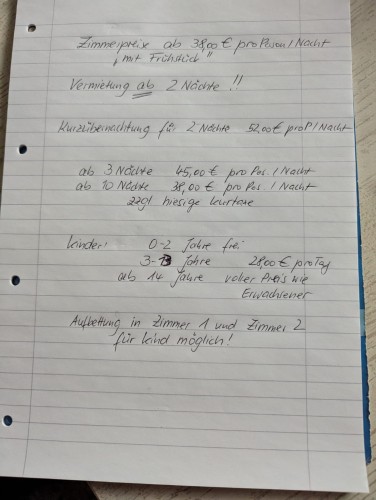 Zimmerpreise ab 38,00 € pro Person / Nacht
„mit Frühstück"
Vermietung ab 2 Nächte !!
Kurzübernachtung für 2 Nächte 52,00 € pro P / Nacht
ab 3 Nächte 45,00 € pro Pers. / Nacht
ab 10 Nächte 38,00 € pro Pers. / Nacht
zzgl hiesige Kurtaxe
Kinder! 0-2 Jahre frei
3-13 Jahre 28,00 € pro Tag
ab 14 Jahre voller Preis wie
Erwachsener
Aufbettung in Zimmer 1 und Zimmer 2
für Kind möglich!